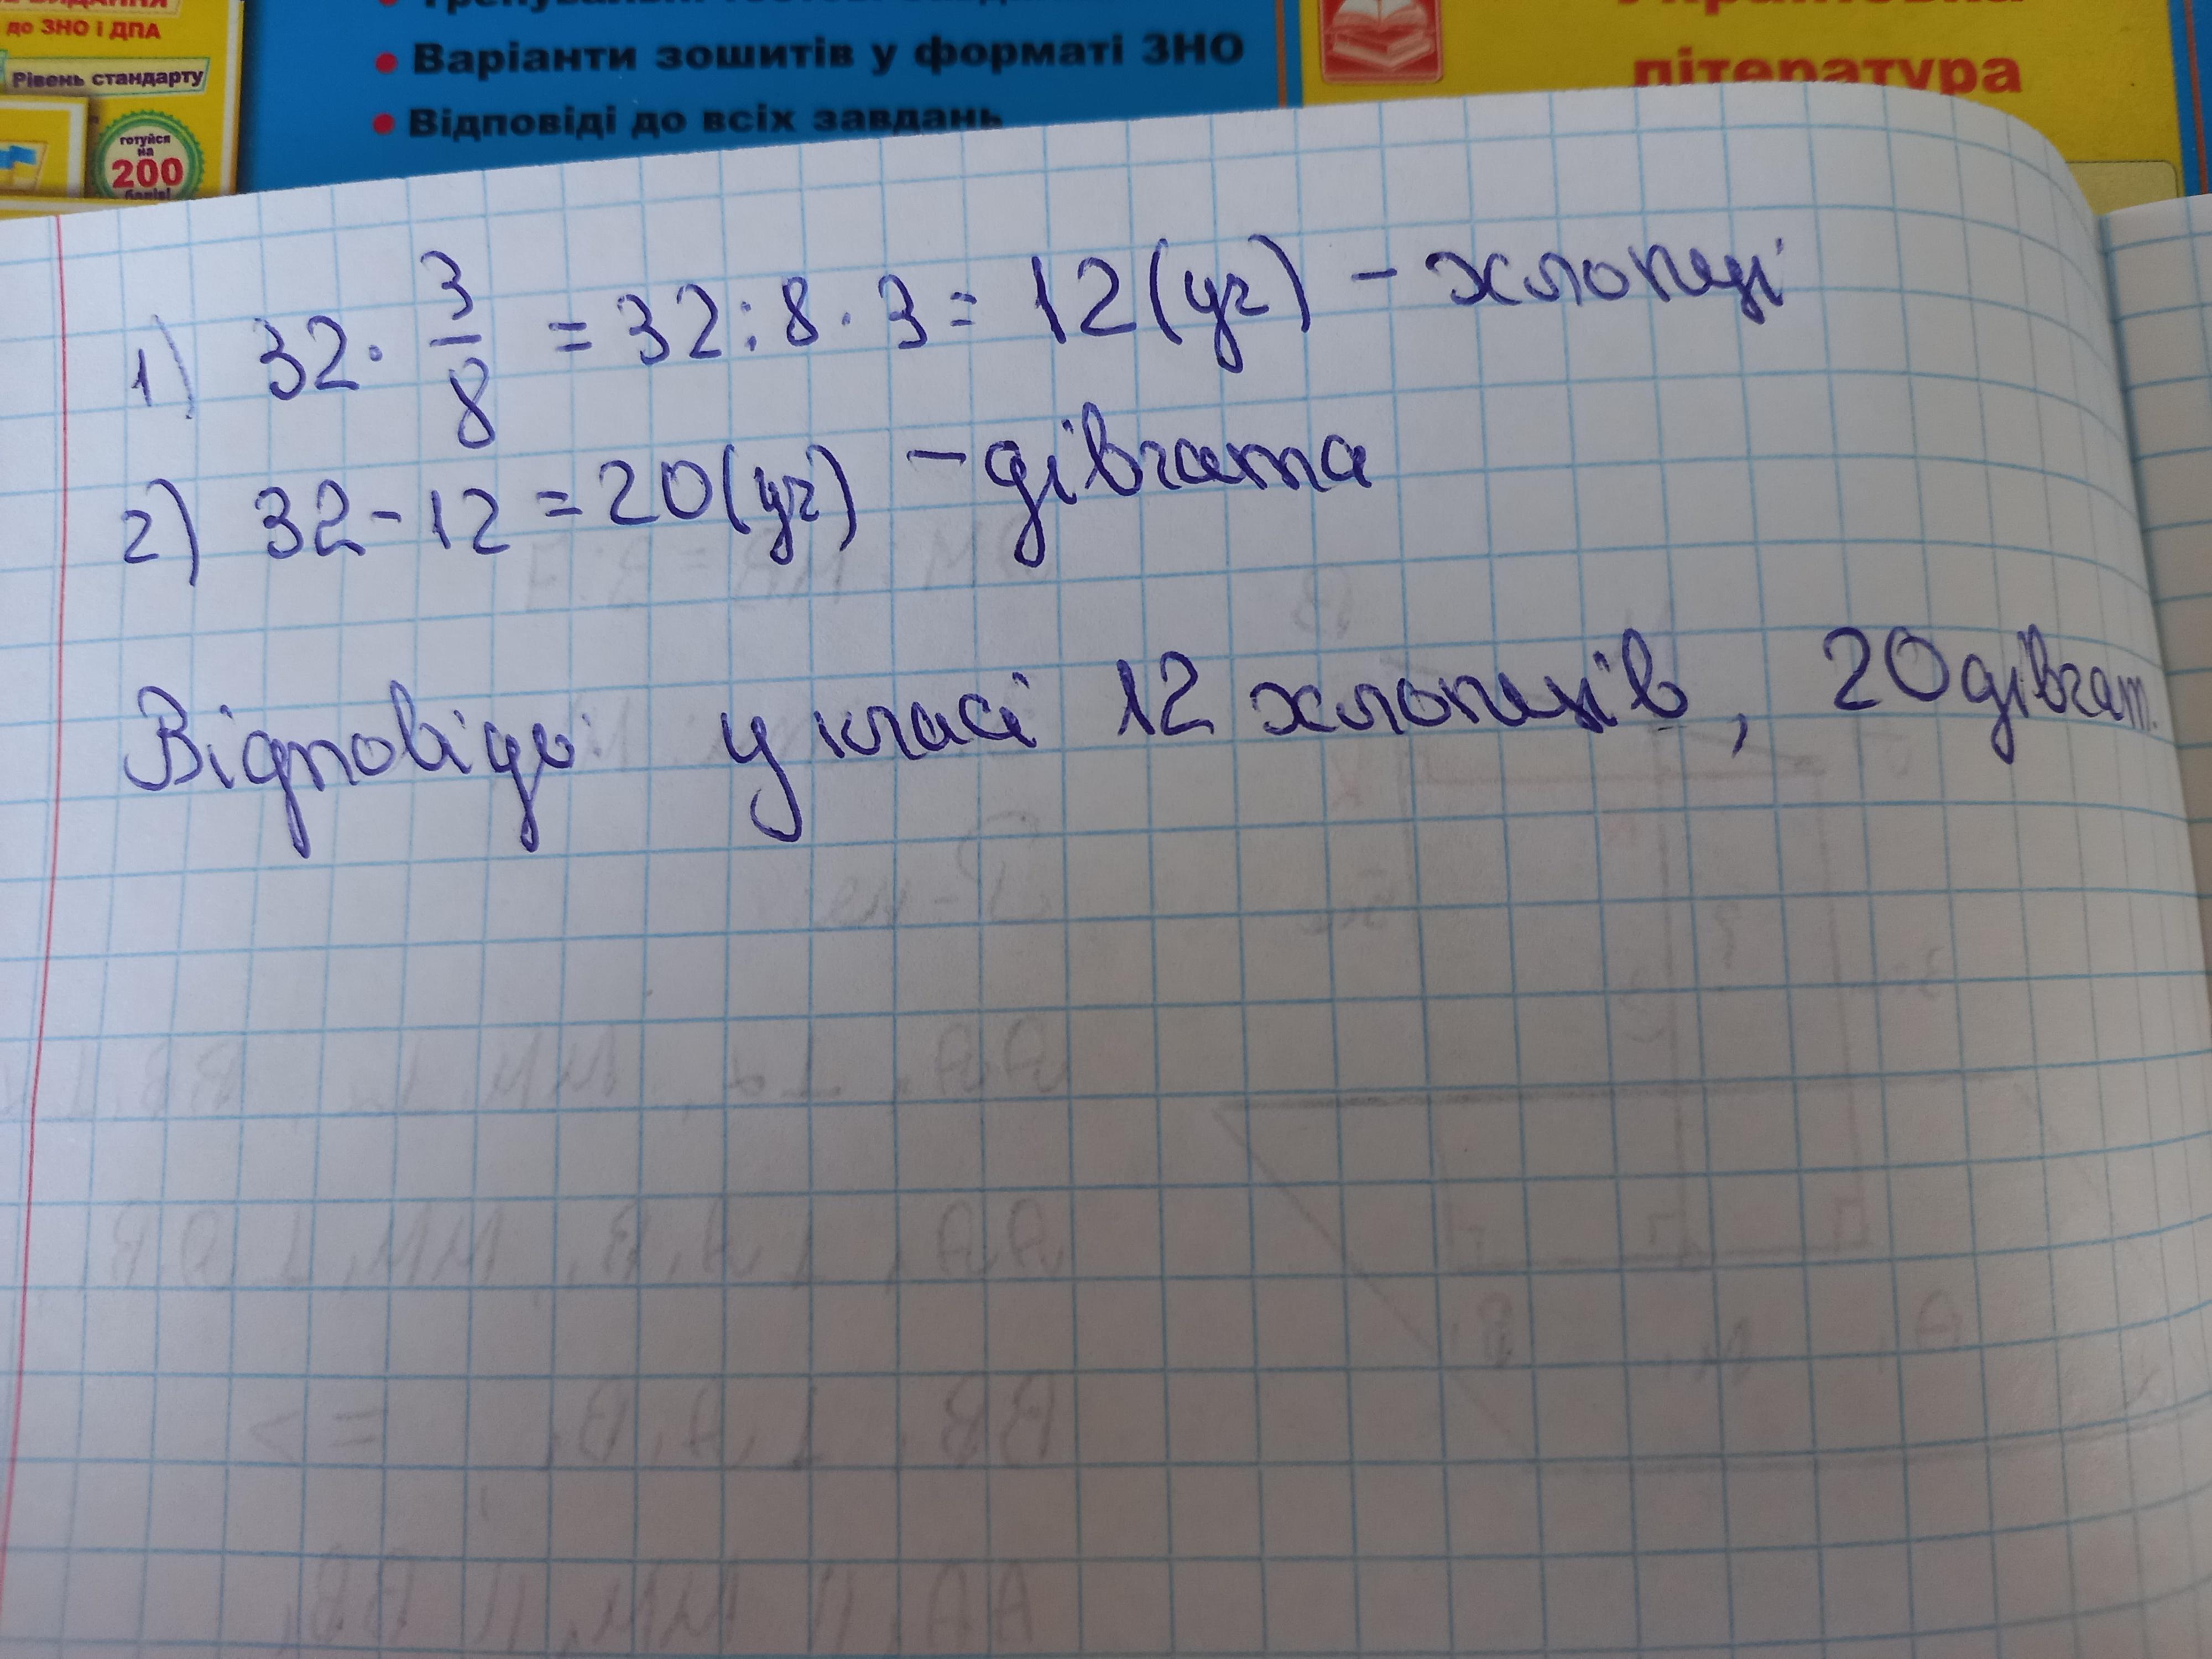 до ЗНО і ДПА
Рівень стандарту
готуйся
на
200
балів!
• Варіанти зошитів у форматі ЗНО
• Відповіді до всіх завдань
література
1) 32 · 3/8 = 32 : 8 · 3 = 12 (уч) – хлопці
2) 32 - 12 = 20 (уч) – дівчата
Відповідь: у класі 12 хлопців, 20 дівчат.